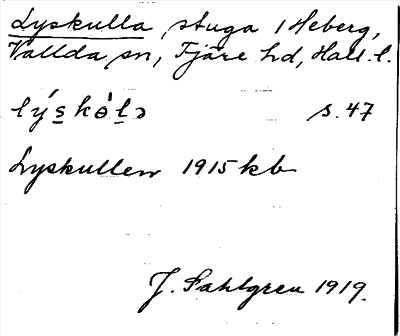 Lyskulla, stuga i Heberg,
Vallda sn, Fjäre hd, Hall. l.
lýskòlɔ s. 47
Lyskullen 1915 kb
J. Sahlgren 1919.